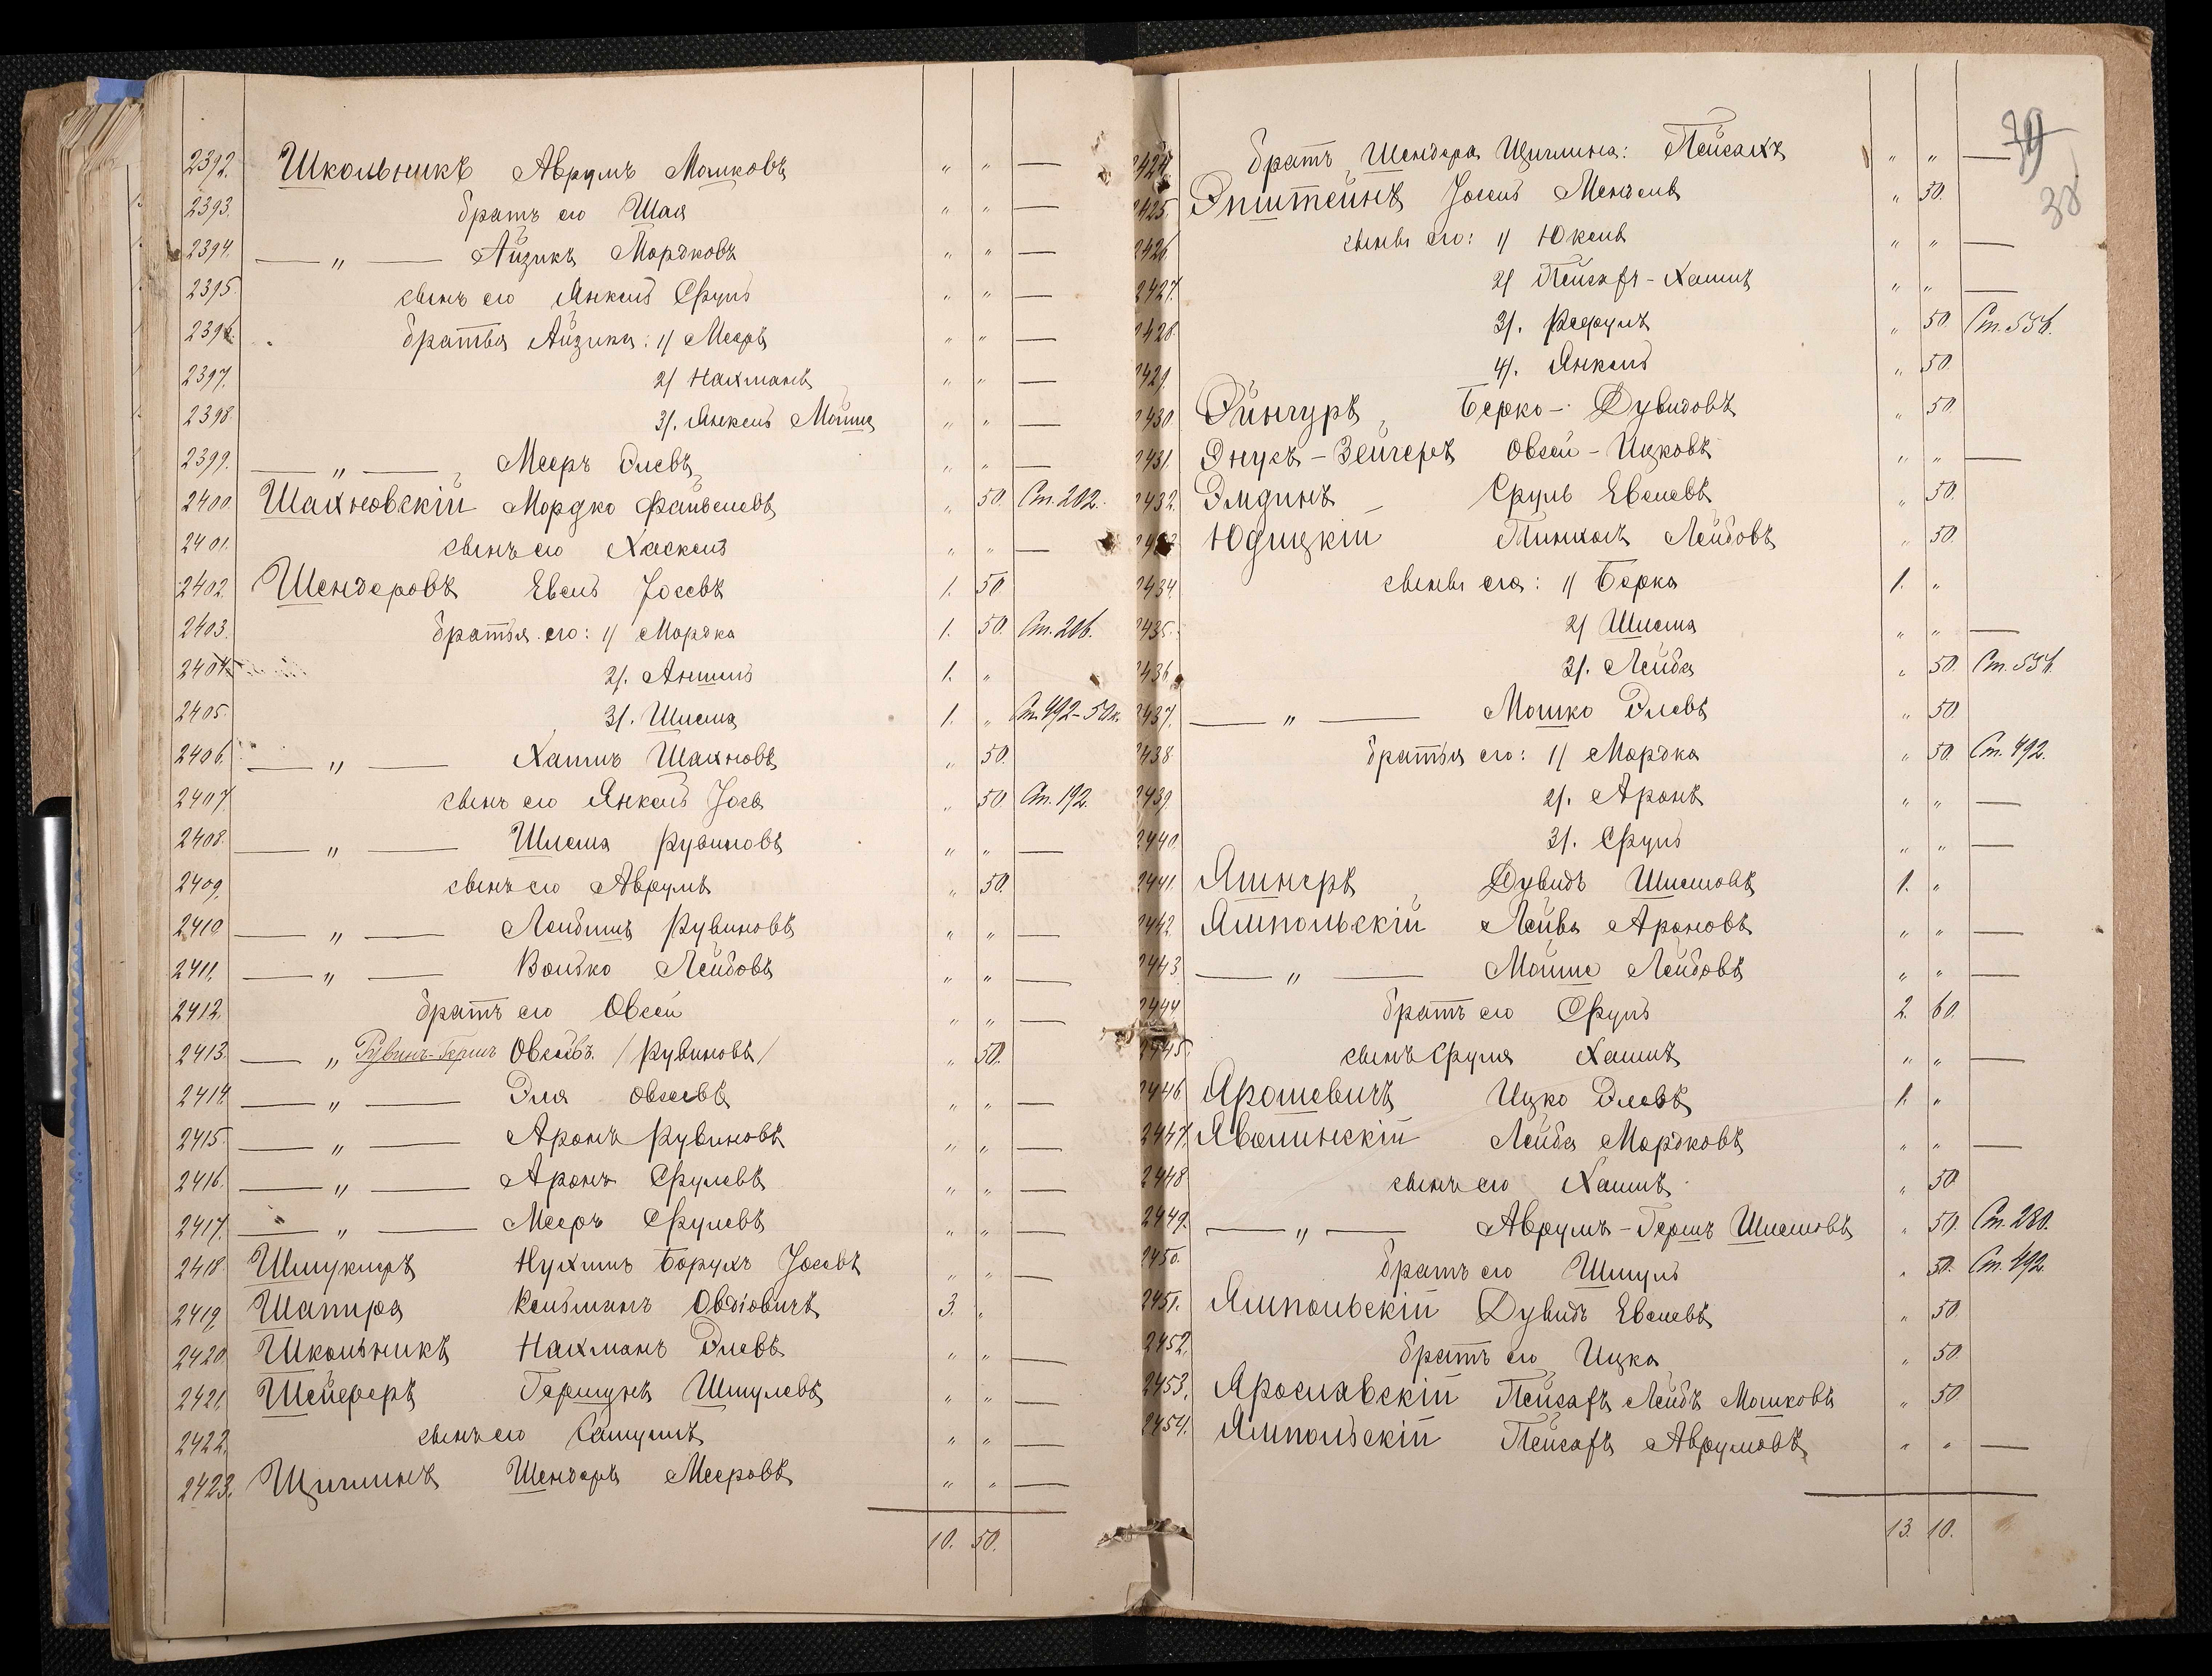 2392. Школьникъ Аврумъ Мошковъ " " —
2393. братъ его Шая " " —
2394. — " — Айзикъ Мордковъ " " —
2395. сынъ его Янкель Сруль " " —
2396. братья Айзика: 1/ Мееръ " " —
2397. 2/ Нахманъ " " —
2398. 3/. Янкель Мойше " " —
2399. — " — Мееръ Элевъ " " —
2400. Шахновскій Мордко Файвелевъ " 50. Ст. 202.
2401. сынъ его Хаскель " " —
2402. Шендеровъ Евель Іосевъ 1. 50.
2403. братья его: 1/ Мордка 1. 50. Ст. 206.
2404. 2/. Аншель 1. "
2405. 3/. Шлема 1. " Ст. 492-50к.
2406. — " — Хаимъ Шахновъ " 50.
2407. сынъ его Янкель Іось " 50. Ст. 192.
2408. — " — Шлема Рувиновъ " " —
2409. сынъ его Аврумъ " 50.
2410. — " — Лейбишъ Рувиновъ " " —
2411. — " — Волько Лейбовъ " " —
2412. братъ его Овсей " " —
2413. — " Рувинъ-Гершъ Овсеевъ /Рувиновъ/ " 50.
2414. — " — Эля Овсеевъ " " —
2415. — " — Аронъ Рувиновъ " " —
2416. — " — Аронъ Срулевъ " " —
2417. — " — Мееръ Срулевъ " " —
2418. Шмуклеръ Нухимъ Борухъ Іосевъ " " —
2419. Шапира Кельманъ Овдіовичъ 3. "
2420. Школьникъ Нахманъ Элевъ " " —
2421. Шейферъ Гершунъ Шмулевъ " " —
2422. сынъ его " " —
2423. Щиглинъ Шендеръ Мееровъ " " —
10. 50.
79
38
2424. братъ Шендера Щиглина: Пейсахъ " " —
2425. Эпштейнъ Іоселъ Менделевъ " 50.
2426. сыновья его: 1/ Юкель " " —
2427. 2/ Пейсахъ-Хаимъ " " —
2428. 3/. " 50. Ст. 556.
2429. 4/. Янкель " 50.
2430. Эйнгуръ Берко-Дувидовъ " 50.
2431. Энукъ-Зейгеръ Овсей-Ицковъ " " —
2432. Элдинъ Сруль Евелевъ " 50.
2433. Юдицкій Пинхосъ Лейбовъ " 50.
2434. сыновья его: 1/ Берка 1. "
2435. 2/ Шлема " " —
2436. 3/. Лейба " 50. Ст. 556.
2437. — " — Мошко Элевъ " 50.
2438. братья его: 1/ Мордка " 50. Ст. 492.
2439. 2/. Аронъ " " —
2440. 3/. Сруль " " —
2441. Яшнеръ Дувидъ Шлемовъ 1. "
2442. Ямпольскій Лейба Ароновъ " " —
2443. — " — Мойше Лейбовъ " " —
2444. братъ его Сруль 2. 60.
2445. сынъ Сруля Хаимъ " " —
2446. Ярошевичъ Ицко Элевъ 1. "
2447. Яволинскій Лейба Мордковъ " " —
2448. сынъ его Хаимъ " 50.
2449. — " — Аврумъ-Гершъ Шлемовъ " 50. Ст. 280.
2450. братъ его Шмуль " 50. Ст. 492.
2451. Ямпольскій Дувидъ Евелевъ " 50.
2452. братъ его Ицка " 50.
2453. Ярославскій Пейсахъ Лейбъ Мошковъ " 50
2454. Ямпольскій Пейсахъ Аврумовъ " " —
13. 10.